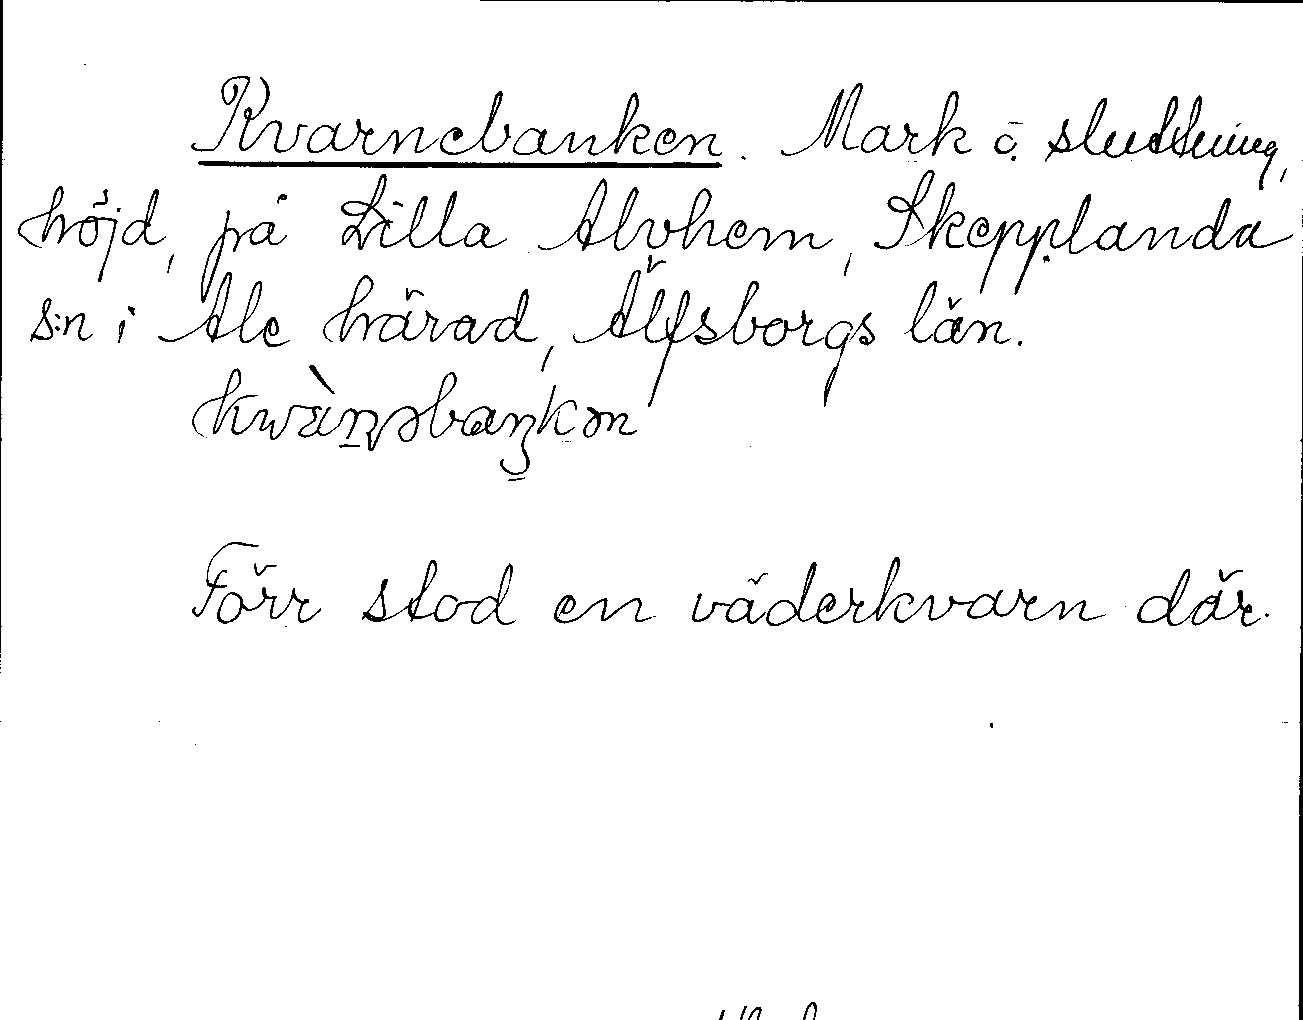 Kvarnebanken. Mark o. sluttning,
höjd, på Lilla Alvhem, Skepplanda
s:n i Ale härad, Älfsborgs län.
kwàṇəbaŋkən
Förr stod en väderkvarn där.